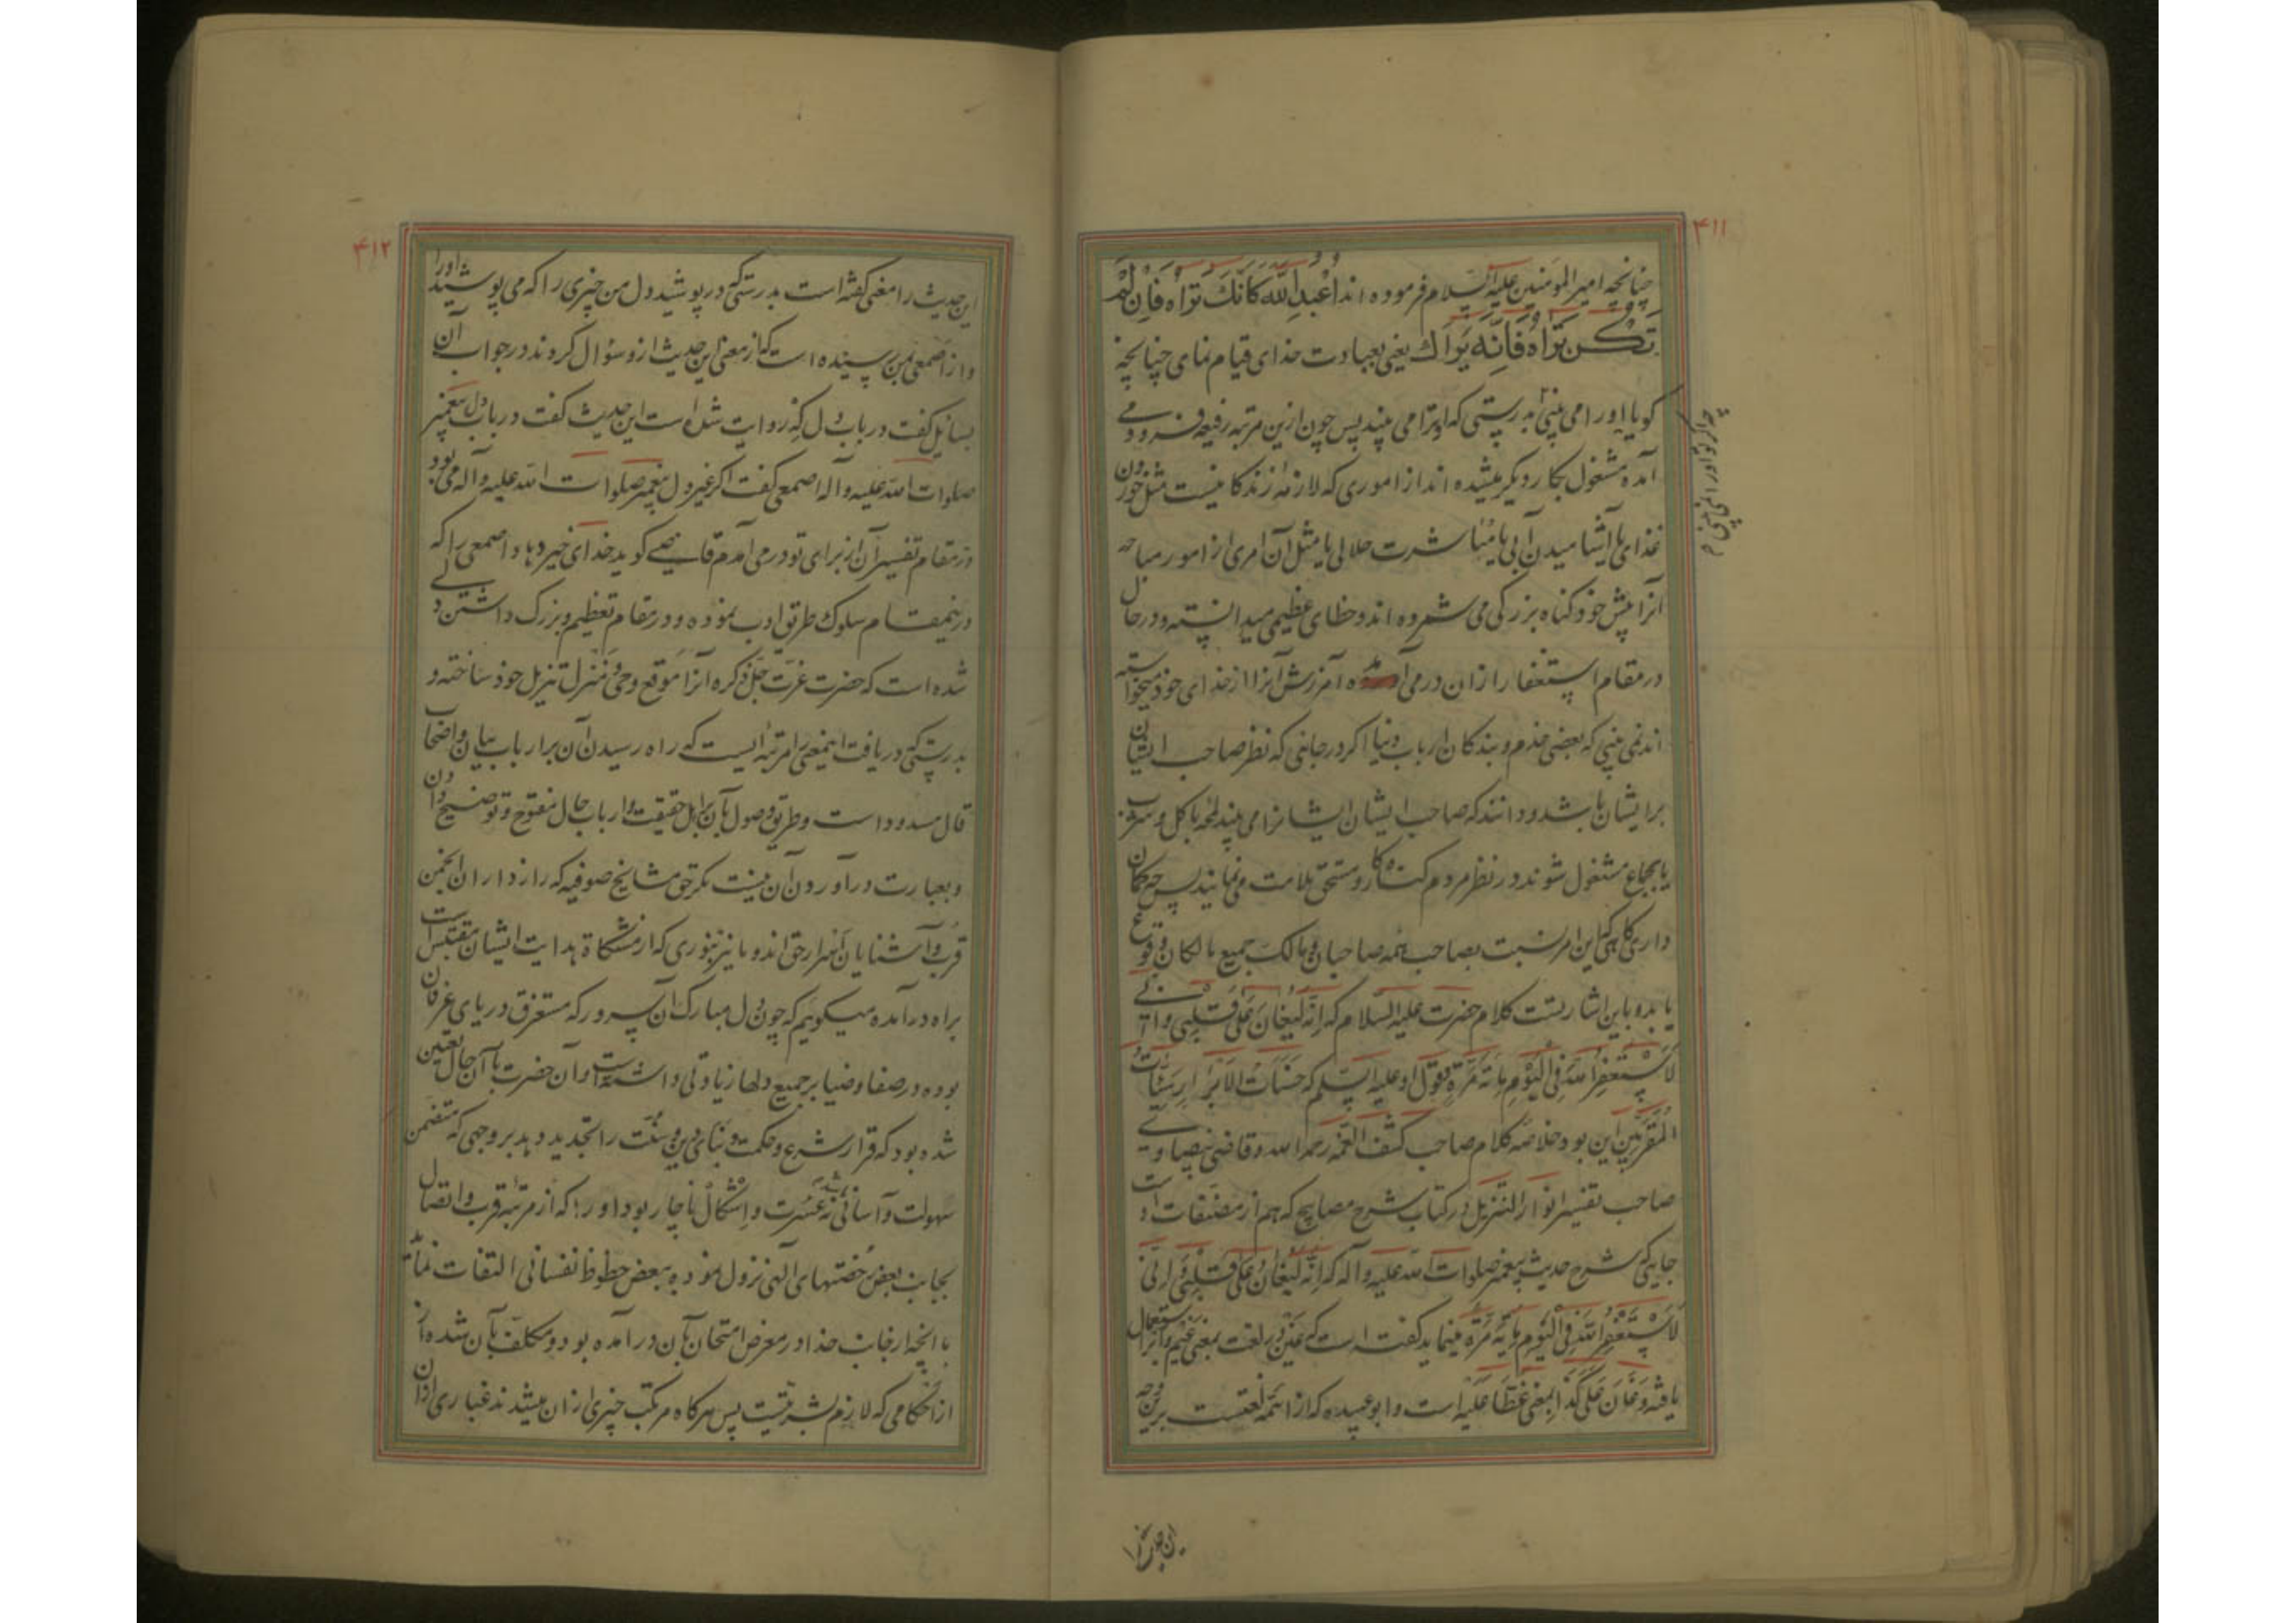 ۴۱۱
چنانچه امیر المؤمنین علیه السلام فرموده اند اُعْبُدِ اللّٰه كَاَنَّكَ تَرَاهُ فَاِنْ لَمْ
تَكُنْ تَرَاهُ فَاِنَّهُ يَرَاكَ یعنی بعبادت خدای قیام نمای چنانچه
کویا اورا می بینی بدرستی که او ترا می بیند پس چون ازین مرتبه رفیعه فرود می
آمده مشغول بکار دیکر میشده اند از اموری که لازمهٔ زندکانیست مثل خوردن
غذای یا آشامیدن آبی یا مباشرت حلالی یا مثل آن امری از امور مباحه
آنرا پیش خود کناه بزرکی می شمرده اند و خطای عظیمی میدانسته و در حال
در مقام استغفار از ان در می آمده آمرزش آنرا از خدای خود میخواسته
اند نمی بینی که بعضی خدم و بندکان ارباب دنیا اکر در جایی که نظر صاحب ایشان
بر ایشان باشد و دانند که صاحب ایشان ایشانرا می بیند لمحه باکل و شرب
یا بجماع مشغول شوند در نظر مردم کناهکار و مستحق ملامت می نمایند پس چه کمان
داری کاهی که این امر نسبت بصاحب همه صاحبان و مالک جمیع مالکان وقوع
یابد و باین اشارتست کلام حضرت علیه السلام که اِنَّهُ لَيُغَانُ عَلٰى قَلْبِى وَ اِنّى
لَاَسْتَغْفِرُ اللّٰهَ فِى الْيَوْمِ مِائَةَ مَرَّةٍ و قول او علیه السلم که حَسَنَاتُ الْاَبْرَارِ سَيِّئَاتُ
الْمُقَرَّبِينَ این بود خلاصه کلام صاحب کشف الغمه رحمه الله و قاضی بیضاوی
صاحب تفسیر انوار التنزیل در کتاب شرح مصابیح که هم از مصنفات اوست
جایی که شرح حدیث پیغمبر صلوات الله علیه و آله که اِنَّهُ لَيُغَانُ عَلٰى قَلْبِى وَ اِنّى
لَاَسْتَغْفِرُ اللّٰهَ فِى الْيَوْمِ مِائَةَ مَرَّةٍ مینماید کفته است که غین در لغت بمعنی غیم و ابر استعمال
یافته وَ غَانَ عَلٰى كَذَا بمعنی غَطَّا عَلَيْهِ است و ابو عبیده که از ائمه لغتست برین وجه
این حدیث را
۴۱۲
این حدیث را معنی کفته است بدرستی که در پوشید دل من چیزی را که می پوشید او را
و از اصمعی بمن رسیده است که از معنی این حدیث ازو سؤال کردند در جواب آن
بسایل کفت در باب دل که روایت شده است این حدیث کفت در باب دل پیغمبر
صلوات الله علیه و آله اصمعی کفت اکر غیر دل پیغمبر صلوات الله علیه و آله می بود
در مقام تفسیر آن از برای تو در می آمدم قاضی کوید خدای خیر دهاد اصمعی را که
درینمقام سلوک طریق ادب نموده و در مقام تعظیم و بزرک داشتن دلی
شده است که حضرت عزت جل ذکره آنرا موقع وحی و منزل تنزیل خود ساخته و
بدرستی که دریافت اینمعنی را مرتبه ایست که راه رسیدن آن بر ارباب بیان و اصحاب
قال مسدود است و طریق وصول بآن بر اهل حقیقت و ارباب حال مفتوح و توضیح دادن
و بعبارت در آوردن آن نیست مکر حق مشایخ صوفیه که رازداران انجمن
قرب و آشنایان اسرار حق اند و ما نیز بنوری که از مشکاة هدایت ایشان مقتبس است
براه در آمده میکوییم که چون دل مبارک آن سرور که مستغرق دریای عرفان
بوده در صفا و ضیا بر جمیع دلها زیادتی داشته است و آن حضرت با آن حال تعیین
شده بود که قرار شرع و حکمت و بنای دین و سنت را تجدید دهد بر وجهی که متضمن
سهولت و آسانی باشد نه عسرت و اشکال ناچار بود او را که از مرتبه قرب و اتصال
بجانب بعض رخصتهای الهی نزول نموده ببعض حظوظ نفسانی التفات نماید
با آنچه از جانب خدا در معرض امتحان بآن در آمده بود و مکلف بآن شده از
از احکامی که لازم بشریتست پس هرکاه مرتکب چیزی از ان میشدند غباری از ان